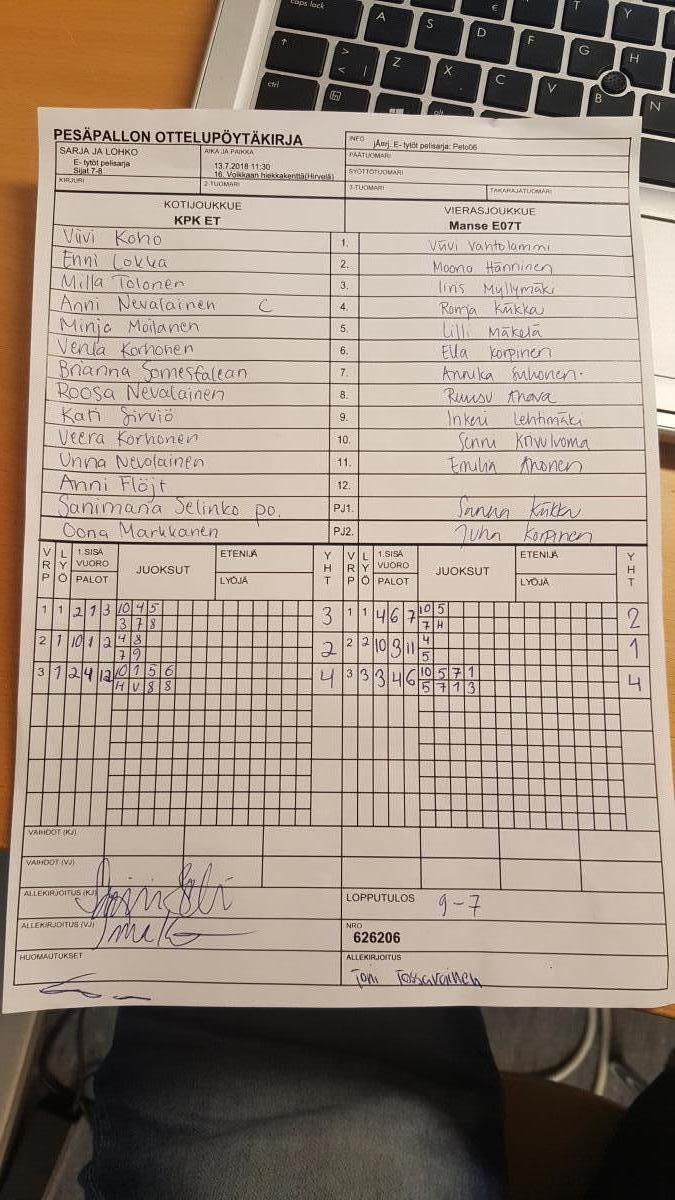 caps lock
PESÄPALLON OTTELUPÖYTÄKIRJA
SARJA JA LOHKO
E- tytöt pelisarja
Sijat 7-8
AIKA JA PAIKKA
13.7.2018 11:30
16. Voikkaan hiekkakenttä(Hirvelä)
INFO
jÄrj. E- tytöt pelisarja: Peto06
PÄÄTUOMARI
SYÖTTÖTUOMARI
KIRJURI
2-TUOMARI
3-TUOMARI
TAKARAJATUOMARI
KOTIJOUKKUE
KPK ET
VIERASJOUKKUE
Manse E07T
Viivi Koho 1. Viivi Vahtolammi
Enni Lokka 2. Moona Hänninen
Milla Tolonen 3. Iiris Myllymäki
Anni Nevalainen C 4. Ronja Kukka
Minja Moilanen 5. Lilli Mäkelä
Venla Korhonen 6. Ella Korpinen
Brianna Somesfalean 7. Annika Suhonen
Roosa Nevalainen 8. Ruusu Ahava
Kati Sirviö 9. Inkeri Lehtimäki
Veera Korhonen 10. Senni
Unna Nevalainen 11. Emilia Ahonen
Anni Flöjt 12.
Sanimaria Selinko po. PJ1. Sanna Kukka
Oona Markkanen PJ2. Juha Korpinen
VRP LYÖ 1.SISÄ VUORO PALOT JUOKSUT ETENIJÄ LYÖJÄ YHT VRP LYÖ 1.SISÄ VUORO PALOT JUOKSUT ETENIJÄ LYÖJÄ YHT
1 1 2 1 3 10 4 5 3 1 1 4 6 7 10 5 2
3 7 8 7 H
2 1 10 1 2 4 8 2 2 2 10 9 11 4 1
7 9 5
3 1 2 4 12 10 1 5 6 4 3 3 3 4 6 10 5 7 1 4
H V 8 8 5 7 1 3
VAIHDOT (KJ)
VAIHDOT (VJ)
ALLEKIRJOITUS (KJ)
LOPPUTULOS 9-7
ALLEKIRJOITUS (VJ)
NRO
626206
HUOMAUTUKSET
ALLEKIRJOITUS
Toni Tossavainen